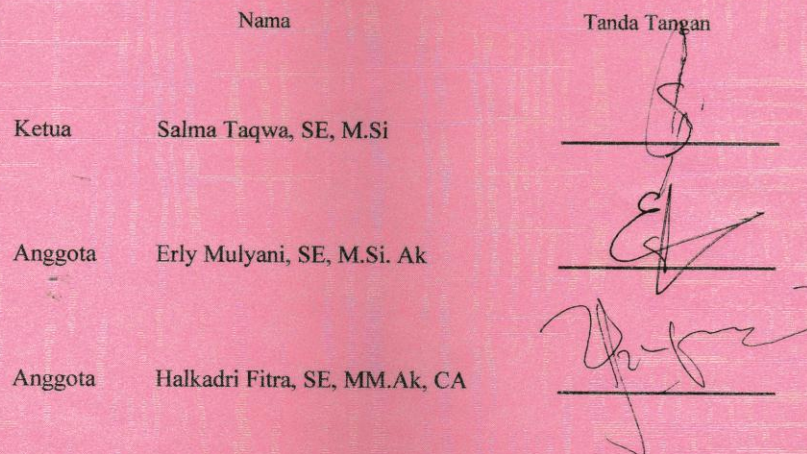 Nama Tanda Tangan
Ketua Salma Taqwa, SE, M.Si
Anggota Erly Mulyani, SE, M.Si. Ak
Anggota Halkadri Fitra, SE, MM.Ak, CA